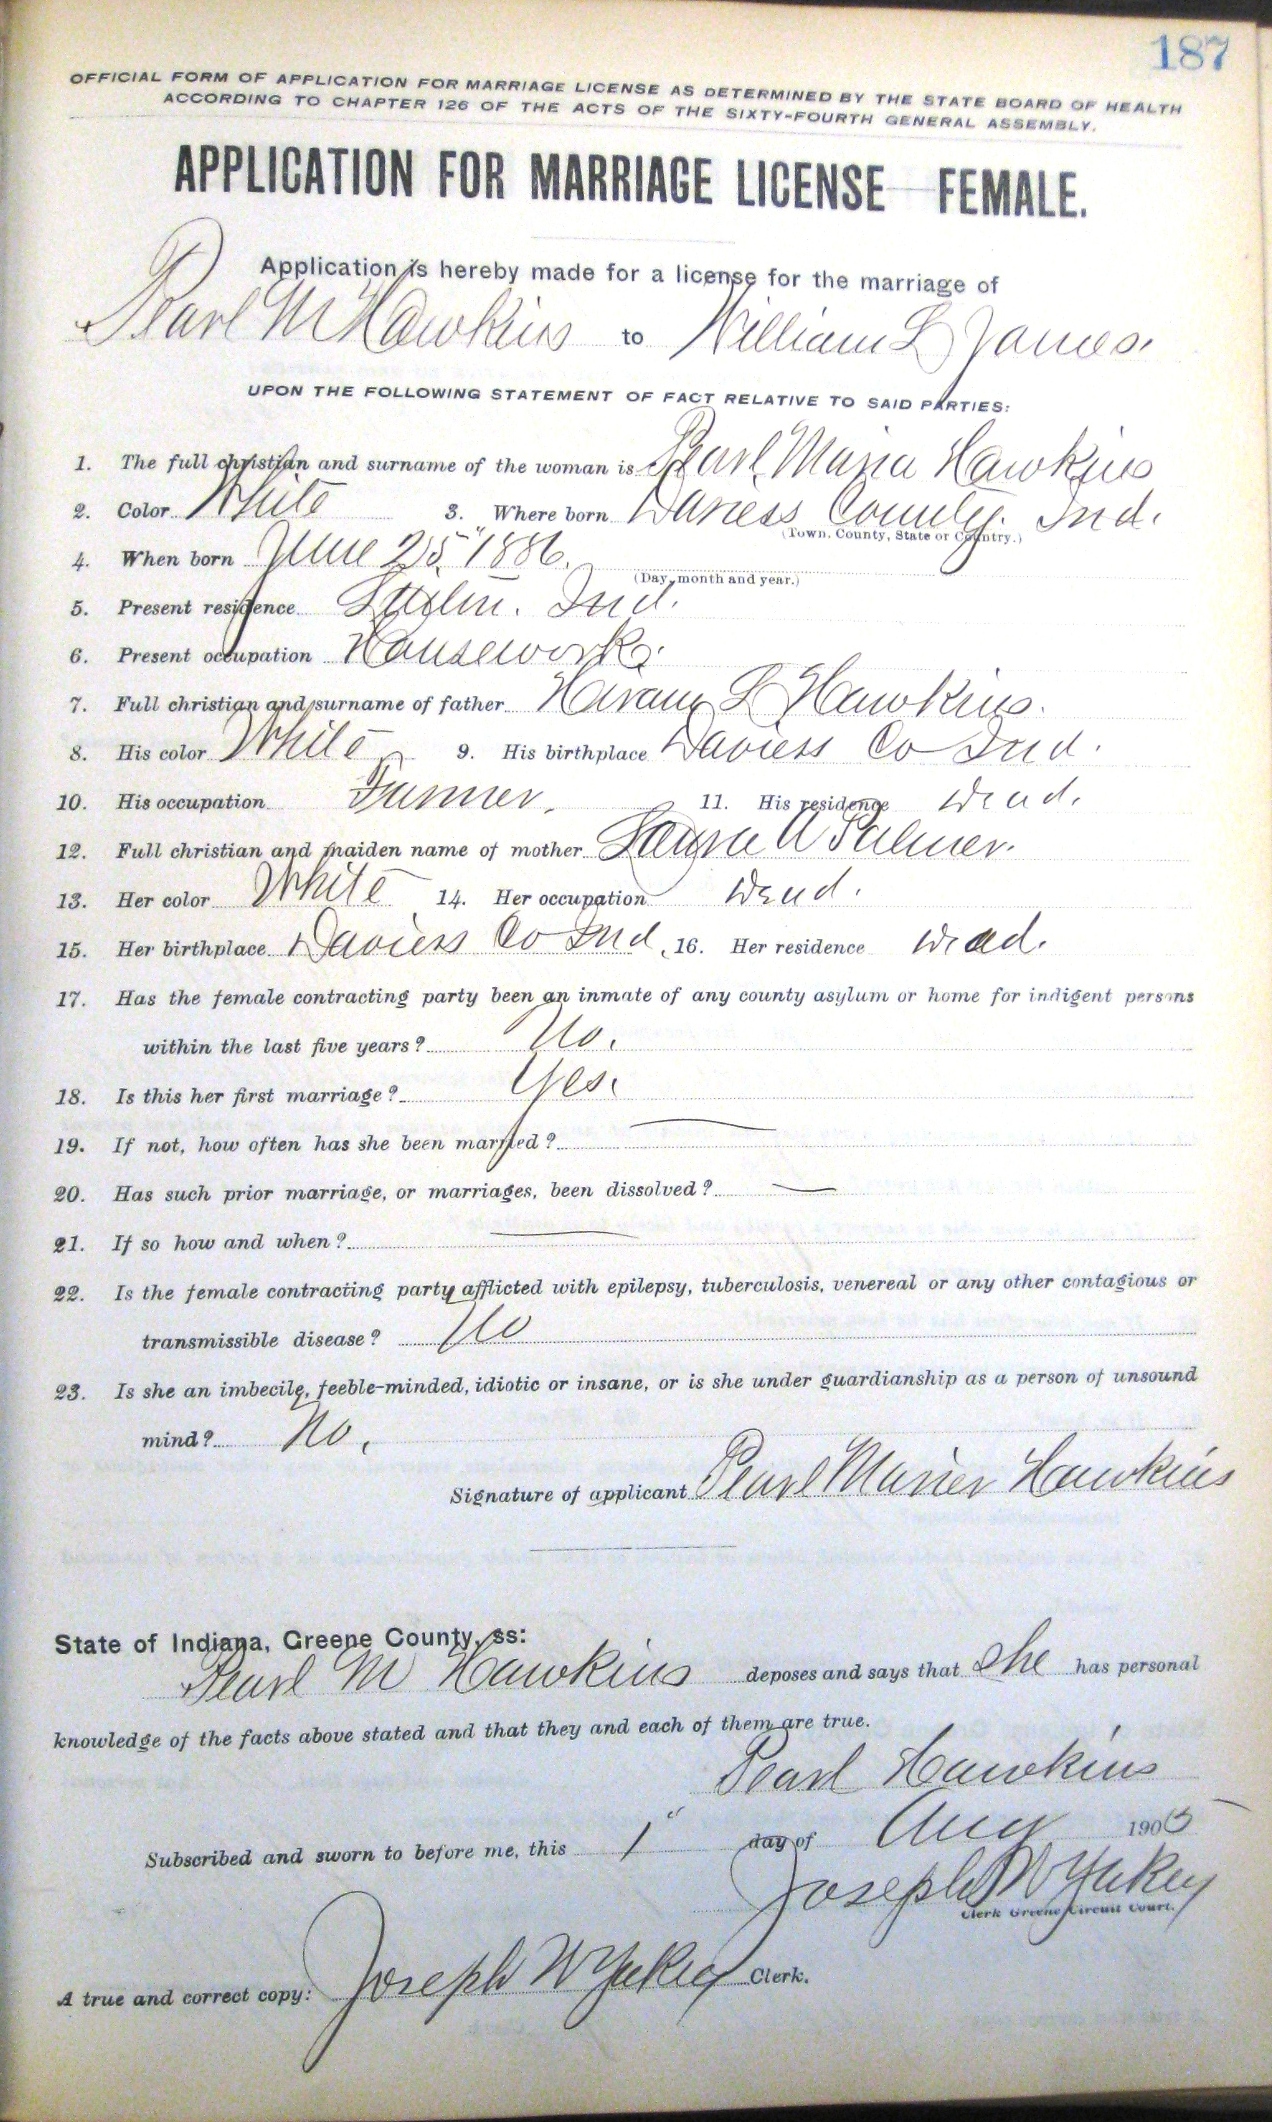 187
OFFICIAL FORM OF APPLICATION FOR MARRIAGE LICENSE AS DETERMINED BY THE STATE BOARD OF HEALTH
ACCORDING TO CHAPTER 126 OF THE ACTS OF THE SIXTY-FOURTH GENERAL ASSEMBLY.
APPLICATION FOR MARRIAGE LICENSE FEMALE.
Application is hereby made for a license for the marriage of
Pearl M Hawkins to William L James.
UPON THE FOLLOWING STATEMENT OF FACT RELATIVE TO SAID PARTIES:
1. The full christian and surname of the woman is Pearl Maria Hawkins
2. Color White 3. Where born Daviess County. Ind.
(Town. County, State or Country.)
4. When born June 25" 1886.
(Day, month and year.)
5. Present residence Ind.
6. Present occupation Housework.
7. Full christian and surname of father Hiram L Hawkins.
8. His color White 9. His birthplace Daviess Co Ind.
10. His occupation Farmer. 11. His residence Dead.
12. Full christian and maiden name of mother Laura A Palmer.
13. Her color White 14. Her occupation Dead.
15. Her birthplace Daviess Co Ind. 16. Her residence Dead.
17. Has the female contracting party been an inmate of any county asylum or home for indigent persons
within the last five years? No.
18. Is this her first marriage? Yes.
19. If not, how often has she been married? —
20. Has such prior marriage, or marriages, been dissolved? —
21. If so how and when? —
22. Is the female contracting party afflicted with epilepsy, tuberculosis, venereal or any other contagious or
transmissible disease? No
23. Is she an imbecile, feeble-minded, idiotic or insane, or is she under guardianship as a person of unsound
mind? No.
Signature of applicant Pearl Marier Hawkins
State of Indiana, Greene County, ss:
Pearl M Hawkins deposes and says that she has personal
knowledge of the facts above stated and that they and each of them are true.
Pearl Hawkins
Subscribed and sworn to before me, this 1" day of Aug 1905
Joseph W Yakey
Clerk Greene Circuit Court.
A true and correct copy: Joseph W Yakey Clerk.